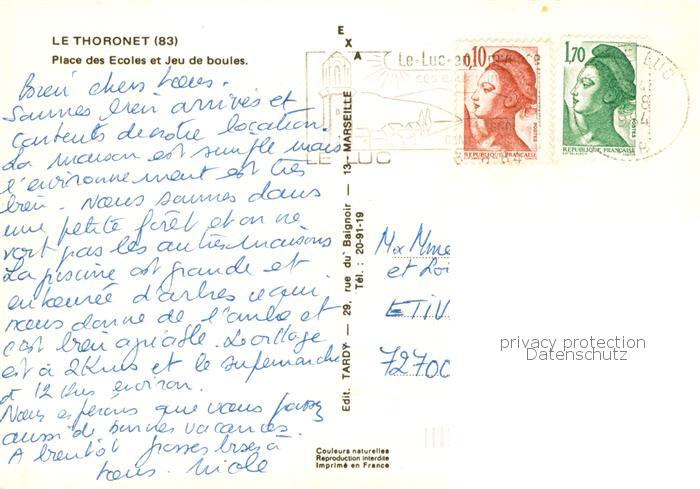 LE THORONET (83)
Place des Ecoles et Jeu de boules.
Bien chers tous.
Sommes bien arrivés et
contents de notre location.
La maison est simple mais
l'environnement est très
bien. Nous sommes dans
une petite forêt et on ne
voit pas les autres maisons
La piscine est grande et
entourée d'arbres ce qui
nous donne de l'ombre et
c'est bien agréable. Le village
est à 2 Kms et le supermarché
à 12 kms environ.
Nous espérons que vous passez
aussi de bonnes vacances.
A bientôt grosses bises à
tous. Nicole
EXA
Edit. TARDY — 29, rue du Baignoir — 13 - MARSEILLE
Tél. : 20-91-19
Couleurs naturelles
Reproduction interdite
Imprimé en France
Le-Luc-en
LE LUC
0,10
REPUBLIQUE FRANÇAISE
POSTES
1,70
REPUBLIQUE FRANÇAISE
POSTES
LUC
Mme
et
ETIV
72700
privacy protection
Datenschutz